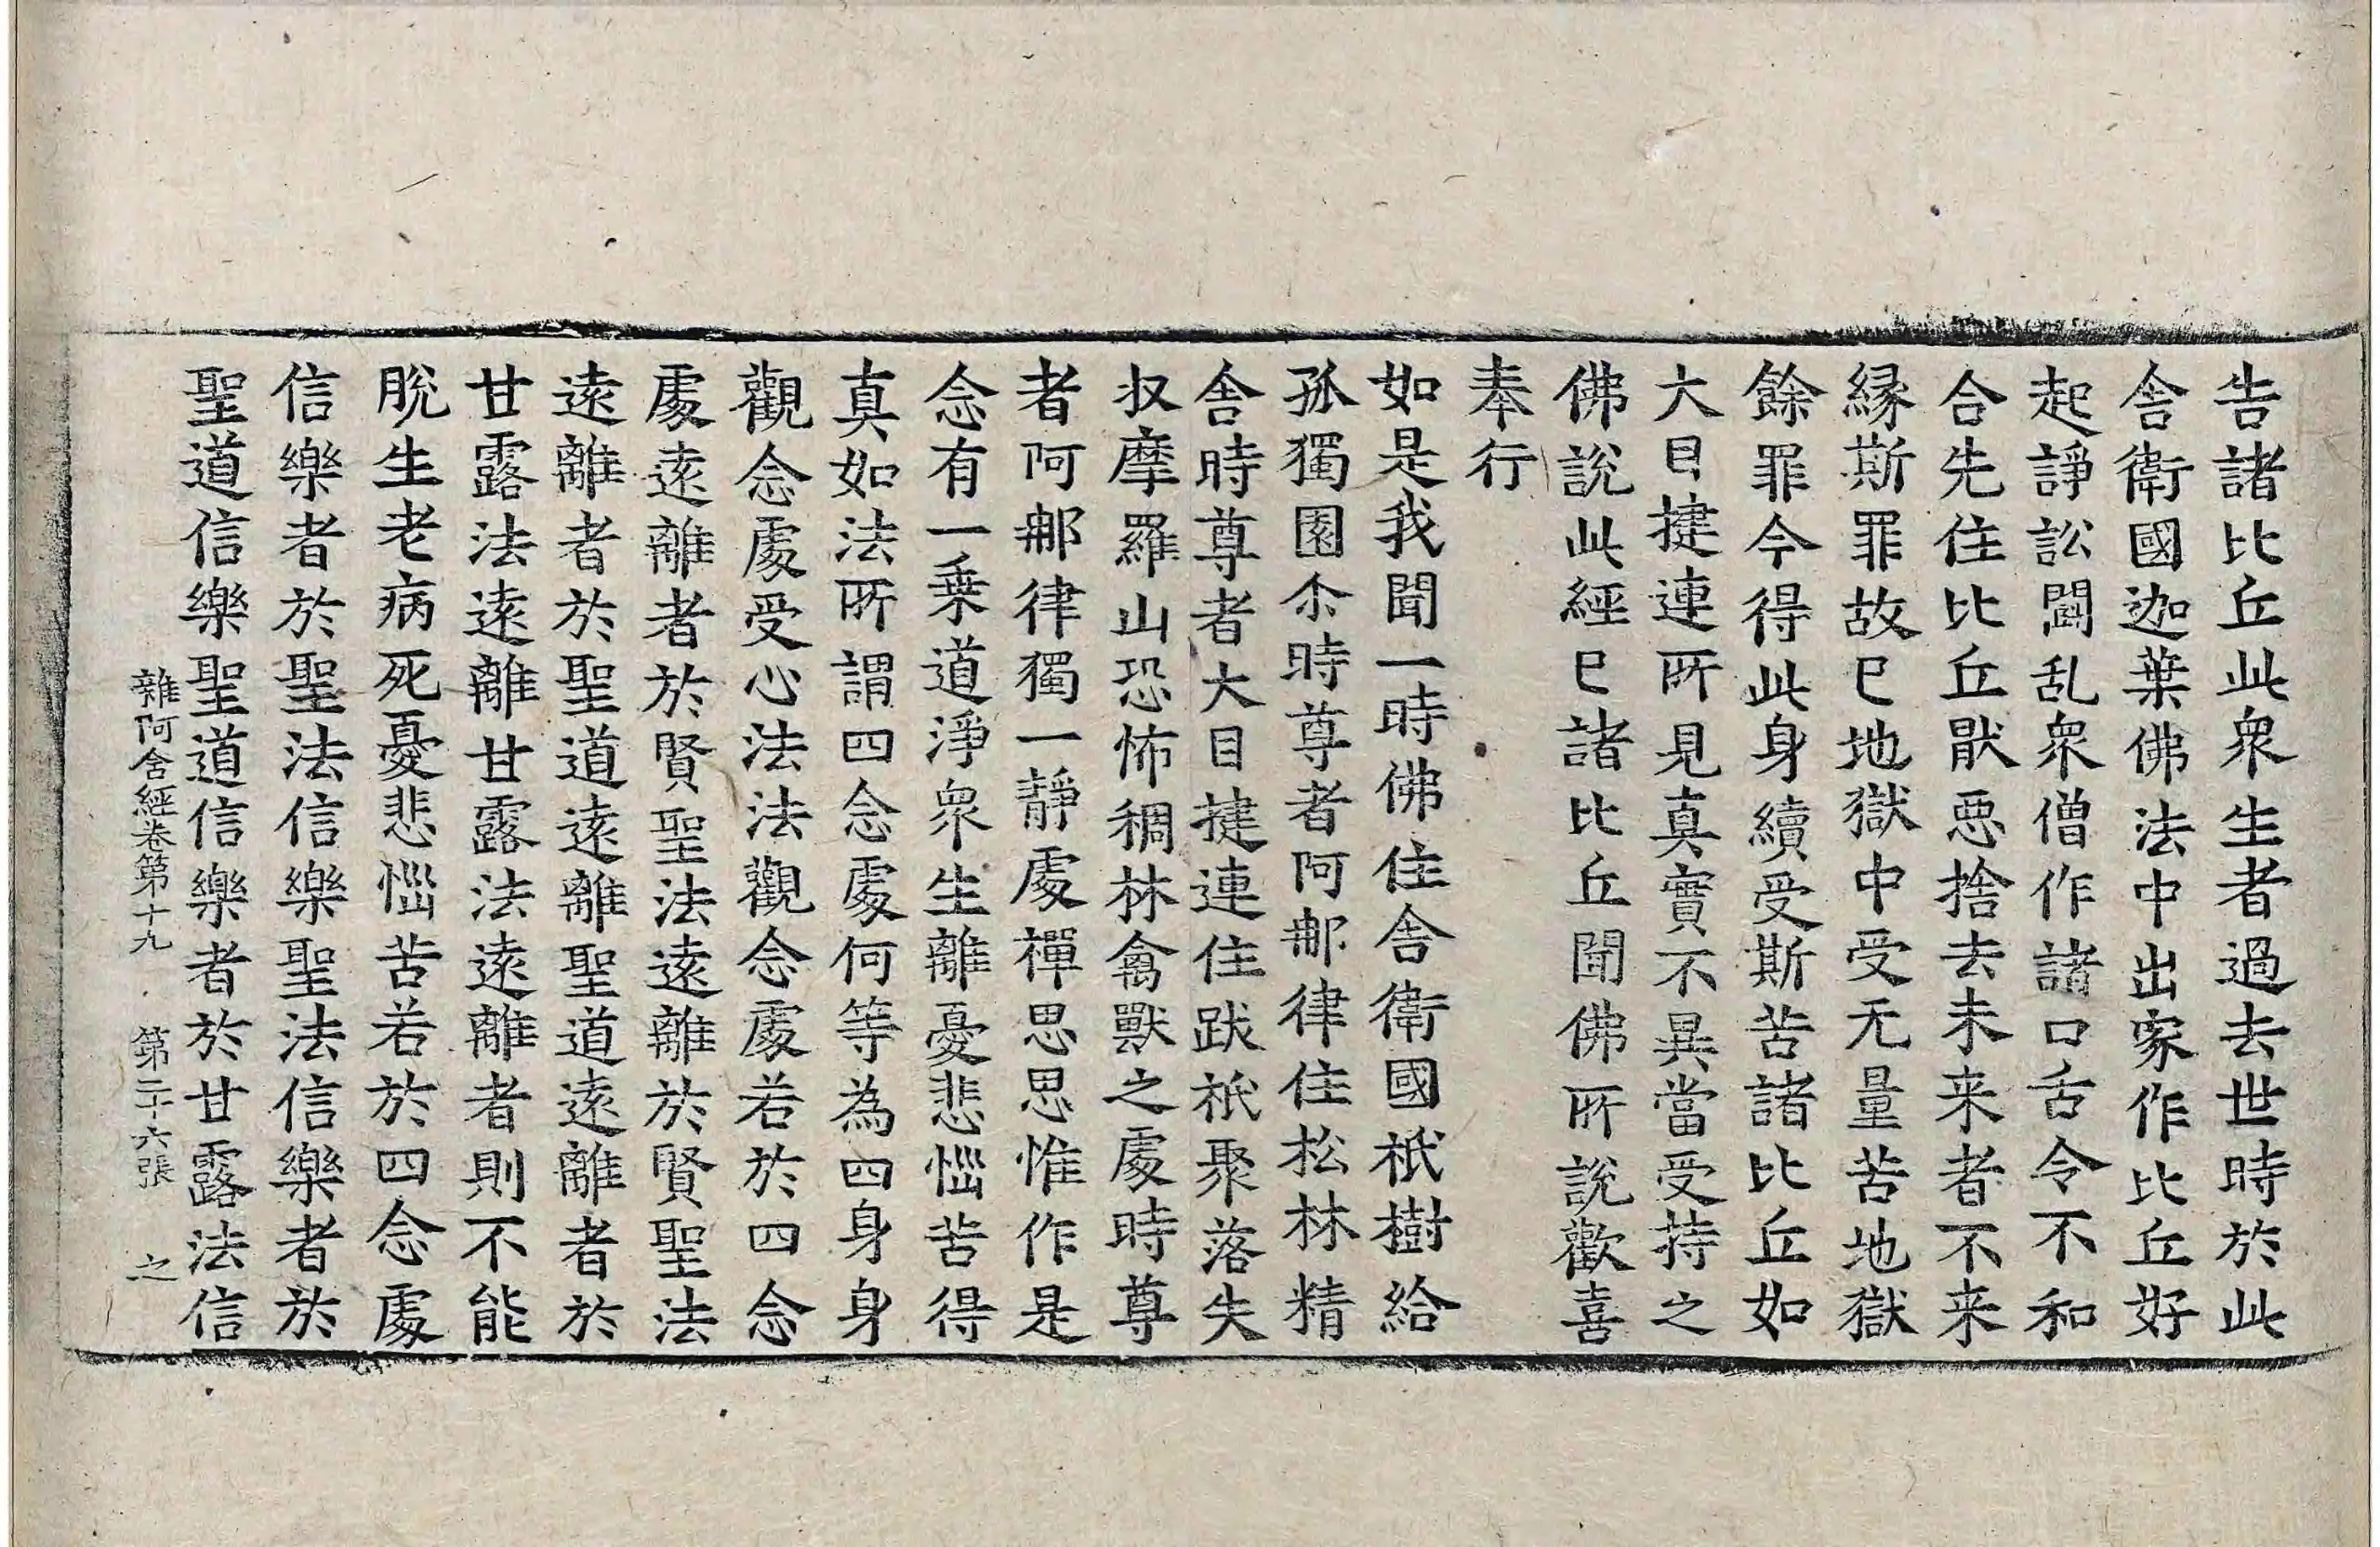 告諸比丘此衆生者過去世時於此
舎衛國迦葉佛法中出家作比丘好
起諍訟鬪乱衆僧作諸口舌令不和
合先住比丘猒惡捨去未来者不来
縁斯罪故已地獄中受无量苦地獄
餘罪今得此身續受斯苦諸比丘如
大目揵連所見真實不異當受持之
佛說此經已諸比丘聞佛所說歡喜
奉行
如是我聞一時佛住舎衛國祇樹給
孤獨園尒時尊者阿那律住松林精
舎時尊者大目揵連住跋祇聚落失
収摩羅山恐怖稠林禽獸之處時尊
者阿那律獨一靜處禪思思惟作是
念有一乗道淨衆生離憂悲惱苦得
真如法所謂四念處何等為四身身
觀念處受心法法觀念處若於四念
處遠離者於賢聖法遠離於賢聖法
遠離者於聖道遠離聖道遠離者於
甘露法遠離甘露法遠離者則不能
脫生老病死憂悲惱苦若於四念處
信樂者於聖法信樂聖法信樂者於
聖道信樂聖道信樂者於甘露法信
雜阿含經卷第十九 第二十六張 之